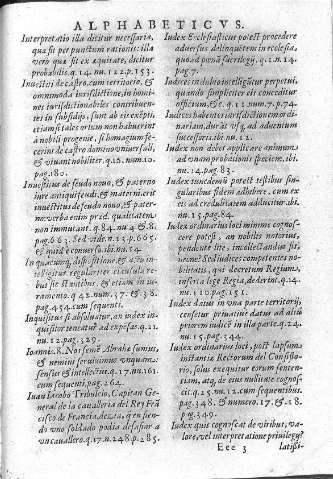 ALPHABETICVS.
Interpretatio illa dicitur necessaria,
quæ fit per punctum rationis: illa
vero quæ fit ex æquitate, dicitur
probabilis. q. 14. nu. 122. p. 153.
Inuestiti de castro, cum territorio, &
omnimoda iurisdictione, in homines
iurisdictionabiles
in subsidijs, sunt ab eis exẽpti,
etiam si tales ortum non habuerint
à nobili progenie, si homagium
à castro domino vniuersali,
& viuant nobiliter. q. 16. num. 10.
pag. 180.
Inuestitus de feudo nouo, & paterno
iure antiqui feudi, & materni
inuestitus de feudo nouo, & paterno:
verba enim qualitatem
non immutant. q. 84. nu. 4. & 8.
pag. 663. Sed vide n. 13. p. 665.
In quacunq; dispositione, &
intelligitur regulariter clausula rebus
sic stantibus, & etiam in iuramento.
q. 42. num. 37. & 36.
pag. 454. cum sequenti.
Inquisitus si absoluatur, an index
inquisitor teneatur ad expensas. q. 21.
nu. 12. pag. 329.
Ioannis. 8. Nos semẽ Abrahæ sumus,
& nemini seruiuimus vnquam:
sensus & intellectus. q. 17. nu. 161.
cum sequenti, pag. 264.
Iuan Iacobo Tribulcio, Capitan General
de la caualleria del Rey Francisco
de Francia, dezia, q̃ en siendo
vno soldado podia desafiar a
vn cauallero. q. 17. n. 248. p. 285.
Iudex Ecclesiasticus potest procedere
aduersus delinquentem in ecclesia,
quoad pœnã sacrilegij, q. 1. n. 14.
pag. 7.
Iudices in dubio intelligũtur perpetui,
quando simpliciter eis conceditur
officium, &c. q. 11. num. 7. p. 74.
Iudices habentes iurisdictionem
durat vsq; ad aduentum
successoris. ibi nu. 12.
Iudex non debet applicare animum
ad vnam probationis speciem. ibi.
nu. 14. pag. 83.
Iudex tunc demũ potest testibus
singularibus fidem adhibere, cum ex
eis ad credulitatem adducitur. ibi.
nu. 15. pag. 84.
Iudex ordinarius loci minime cognoscere
potest, an nobilis notorius,
pendente lite, in
Sed iudices competentes nobilitatis,
qui decretum Regium,
inserta lege Regia, dederint. q. 14.
nu. 110. pag. 151.
Iudex datus in vna parte territorij,
censetur priuatiue datus ad alium
priorem iudicẽ in illa parte. q. 24.
nu. 15. pag. 344.
Iudex ordinarius loci, post lapsum
instantiæ Rectorum del Consistorio,
solus exequitur eorum sententiam,
atq; de eius nullitate
q. 25. nu. 12. cum sequentibus.
pag. 348. & numero. 17. & 18.
pag. 349.
Iudex quis cognoscat de viribus, valore,
vel interpretatione priuilegij?
Ece 3
latissi-